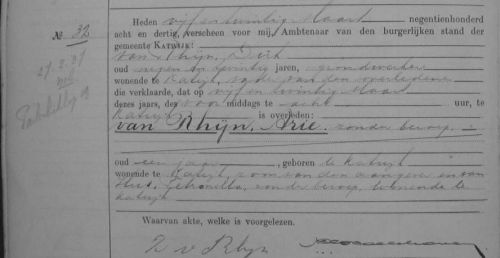 Heden vijf en twintig Maart negentienhonderd
No 32
acht en dertig, verscheen voor mij, Ambtenaar van den burgerlijken stand der
gemeente KATWIJK:
van Rhijn, Dirk
oud negen en twintig jaren, grondwerker
wonende te Katwijk, vader van den overledene
die verklaarde, dat op vijf en twintig Maart
dezes jaars, des voor middags te acht uur, te
Katwijk is overleden:
van Rhijn, Arie, zonder beroep,
oud een jaar, geboren te Katwijk
wonende te Katwijk, zoon van den aangever en van
Petronella, zonder beroep, wonende te
Katwijk
Waarvan akte, welke is voorgelezen.
D v Rhijn